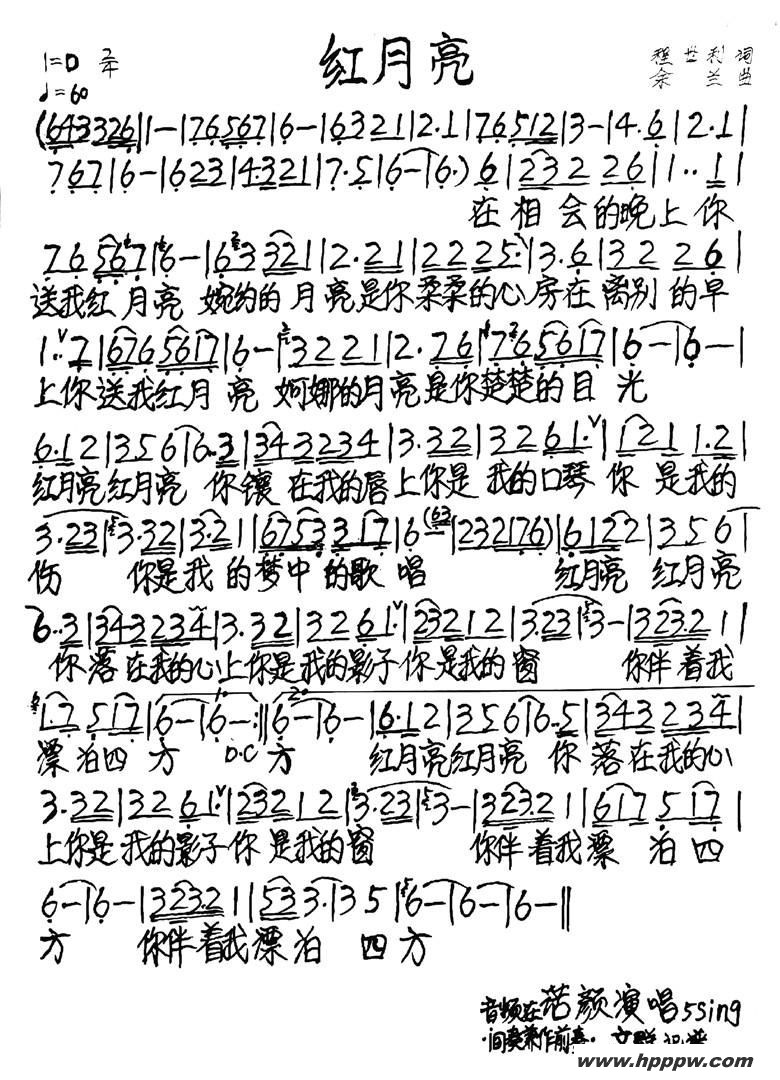 红月亮
1=D 2/4
♩=60
词
余 兰 曲
(643326|1-|76567|6-|6321|2·1|76512|3-|4·6|2·1|
767|6-|623|4321|7·5|6-|6·) 6|232 26|1··1|
在 相 会的晚上 你
76567|6-|63321|2·21|2225·|3·6|32 26|
送我红 月亮 婉约的 月亮是你柔柔的心房在 离别 的早
1··7|676567|6-|3221|2·76|76567|6-|6-|
上你送我红月 亮 婀娜的月亮是你楚楚的目 光
6·12|356|6··3|343234|3·32|3261·|121 1·2|
红月亮红月亮 你镶 在我的唇上你是 我的口琴 你 是我的
3·23|3·32|3·21|6753317|6 (63|232176)|6122|356|
伤 你是我 的梦中 的歌 唱 红月亮 红月亮
6··3|343234|3·32|3261·|23212|3·23|3-|323·21|
你落 在我的心上你是我的影子你是我的窗 你伴 着我
1·7 517|6-|6-:‖6-|6-|6·12|356|6··5|343234|
漂泊四 方 D.C 方 红月亮红月亮 你 落在我的心
3·32|3261·|23212|3·23|3-|323·21|617 517|
上你是 我的影子你 是我的窗 你伴 着我漂 泊 四
6-|6-|323·21|533·|35|6-|6-|6-‖
方 你伴着我漂泊 四方
音频在诺颜演唱5sing
·间奏兼作前奏·
www.hpppw.com